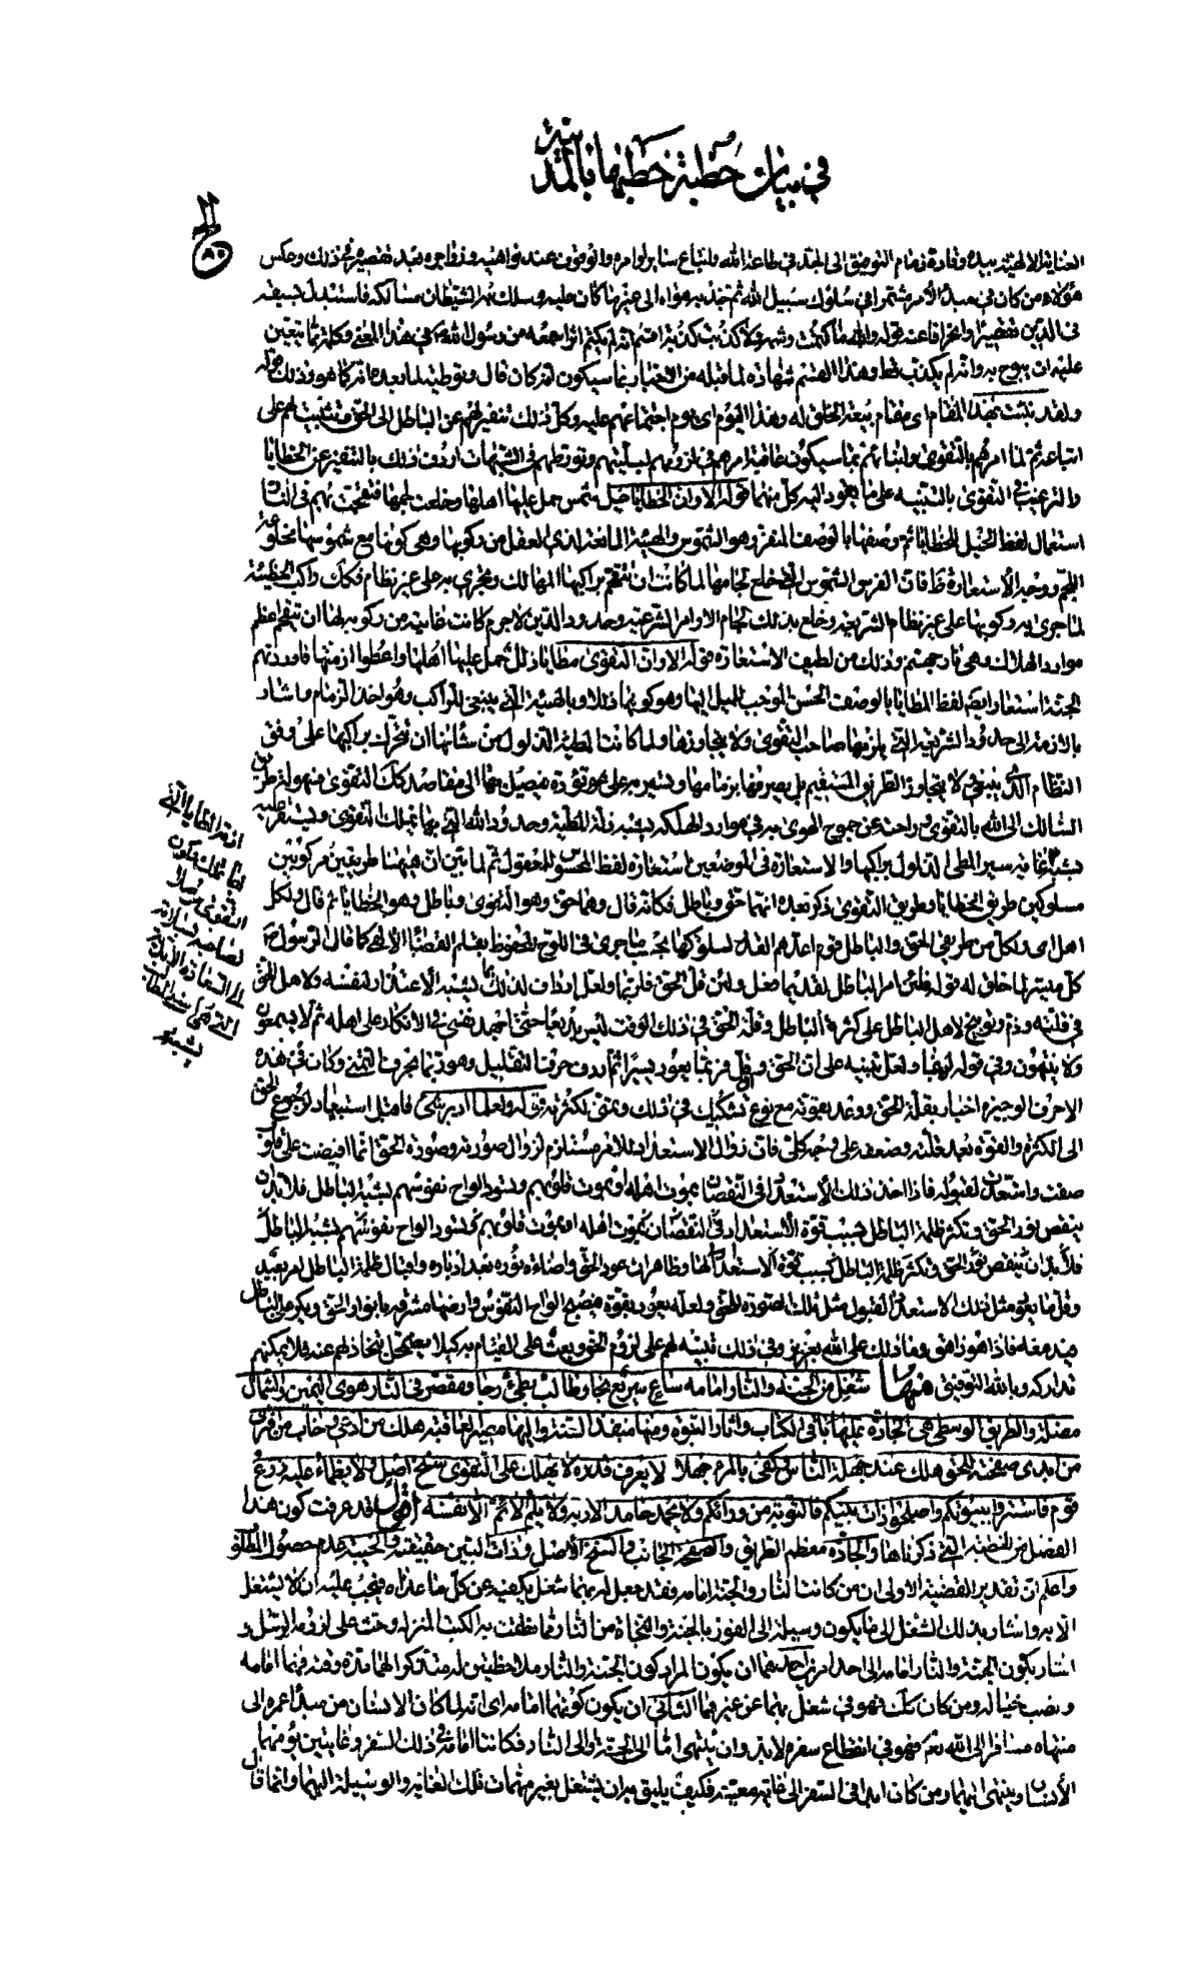 في بيان خطبة خطبها بالمدينة
العناية الالهية بيده وقادة زمام التوفيق الى الجد في طاعة الله واتباع ساير اوامره والوقوف عند نواهيه وزواجره بعد تقصيره في ذلك وعكس
هؤلاء من كان في مبدأ الأمر مشتمرا في سلوك سبيل الله ثم جذب به هواه الى غيرها كان عليه وسلك به الشيطان مسالكه فاستبدل بسبقه
في الدين تقصيرا وانحرافا عنه قوله والله ما كتمت وشمة ولا كذبت كذبة اقسم انه لم يكتم اثرا سمعه من رسول الله في هذا المعنى وكلمة مما يتعين
عليه ان يبوح به وانه لم يكذب قط وهذا القسم شهادة لما قبله من الاخبار بما سيكون انه كان قال وتوطية لما بعده انه كما هو وذلك قوله
ولقد نبئت بهذا المقام اى مقام بيعة الخلق له وهذا اليوم اى يوم اجتماعهم عليه وكل ذلك تنفير لهم عن الباطل الى الحق وتثبيت لهم على
اتباعه ثم لما امرهم بالتقوى وانبائهم بما سيكون عاقبة امرهم في لزومهم لبليتهم وتورطهم في الشبهات اردف ذلك بالتنفير عن الخطايا
والترغيب في التقوى بالتنبيه على ما يقود اليه كل منهما قوله الا وان الخطايا خيل شمس حمل عليها اهلها وخلعت لجمها فتقحمت بهم في النار
استعمال لفظ الخيل للخطايا ثم وصفها بالوصف المنفر وهو الشموس والهيئة المانعة لذى العقل من ركوبها وهي كونها مع شموسها مخلوعة
اللجم ووجه الاستعارة ظ فان الفرس الشموس التي خلع لجامها لما كانت ان تتقحم براكبها المهالك وتجري به على غير نظام فكك راكب الخطيئة
لما جرى به ركوبها على غير نظام الشريعة وخلع بذلك لجام الاوامر الشرعية وحدود الدين لا جرم كانت غايته من ركوبه لها ان تتقحم اعظم
موارد الهلاك وهي نار جهنم وذلك من لطيف الاستعارة قوله الا وان التقوى مطايا ذلل حمل عليها اهلها واعطوا ازمتها فاوردتهم
الجنة استعار ايضا لفظ المطايا بالوصف الحسن الموجب للميل اليها وهو كونها ذللا وبالهيئة التي ينبغي للراكب وهو اخذ الزمام واشار
بالازمة الى حدود الشريعة التي يلزمها صاحب التقوى ولا يتجاوزها ولما كانت المطية الذلول من شأنها ان تتحرك براكبها على وفق
النظام الذي ينبغي ولا يتجاوز الطريق المستقيم بل يصرفها بزمامها ويسير به على تؤدة فيصل بها الى مقاصده كك التقوى فسهولة طريق
السالك الى الله بالتقوى وراحته عن جموح الهوى به في موارد الهلكة يشبه ذلة المطية وحدود الله التي بها يملك التقوى ويستقر عليه
يشبه سير المطى الذلول براكبها والاستعارة في الموضعين استعارة لفظ المحسوس للمعقول ثم لما بين ان ههنا طريقين مركوبتين
مسلوكين طريق الخطايا وطريق التقوى ذكر بعده انهما حق وباطل فكانه قال وهما حق وهو التقوى وباطل وهو الخطايا ثم قال ولكل
اهل اى ولكل من طريقي الحق والباطل قوم اعدهم القدر لسلوكها بحسب ما جرى في اللوح المحفوظ بقلم القضاء الالهي كما قال الرسول ص
كل ميسر لما خلق له قوله فلئن امر الباطل لقديما فعل ولئن قل الحق فلربما ولعل اردف لذلك بشبه الاعتذار لنفسه ولاهل الحق
في قلته وذم وتوبيخ لاهل الباطل على كثرة الباطل وقلة الحق في ذلك الوقت ليس بديعا حتى اجهد نفسي في الانكار على اهله ثم لا يسمعون
ولا ينتهون وفي قوله لربما ولعل تنبيه على ان الحق وان قل فربما يعود يسيرا ثم اردف حرف التقليل وهو ربما بحرف التمني وكان في هذه
الاحرف الوجيزة اخبار بقلة الحق ووعد بقوته مع نوع تشكيك في ذلك وتمنى لكثرته قوله ولقلما ادبر شئ فاقبل استبعاد لرجوع الحق
الى الكثرة والقوة بعد قلته وضعفه على وجه كلى فان زوال الاستعداد للامر مستلزم لزوال صورته وصورة الحق انما افيضت على قلوب
صفت واستعدت لقبوله فاذا اخذ ذلك الاستعداد في النقصان بموت اهله او بموت قلوبهم وتسود الواح نفوسهم بشبه الباطل فلا بد ان
ينقص نور الحق وتكثر ظلمة الباطل بسبب قوة الاستعداد في النقصان بموت اهله او بموت قلوبهم وتسود الواح نفوسهم بشبه الباطل
فلا بد ان ينقص نور الحق وتكثر ظلمة الباطل بسبب قوة الاستعداد لها وظاهر ان عود الحق واضاءة نوره بعد ادباره واقبال ظلمة الباطل امر بعيد
وقل ما يعود مثل ذلك الاستعداد لقبول مثل تلك الصورة للحق ولعله يعود بقوة فيصبح الواح النفوس وارضها مشرقة بانوار الحق ويكر على الباطل
فيدمغه فاذا هو زاهق وما ذلك على الله بعزيز وفي ذلك تنبيه لهم على لزوم الحق وبعث على القيام به كيلا يضمحل بتخاذلهم عنه فلا يمكنهم
تداركه وبالله التوفيق منها شغل من الجنة والنار امامه ساع سريع نجا وطالب بطئ رجا ومقصر في النار هوى اليمين والشمال
مضلة والطريق الوسطى هي الجادة عليها باقى الكتاب واثار النبوة ومنها منفذ السنة واليها مصير العاقبة هلك من ادعى وخاب من افترى
من ابدى صفحته للحق هلك عند جهلة الناس وكفى بالمرء جهلا لا يعرف قدره لا يهلك على التقوى سنخ اصل ولا يظمأ عليه زرع
قوم فاستتروا ببيوتكم واصلحوا ذات بينكم فالتوبة من ورائكم ولا يحمد حامد الا ربه ولا يلم لائم الا نفسه اقول قد عرفت كون هذا
الفصل من الخطبة التي ذكرناها والجادة معظم الطريق والصفحة الجانب والسنخ الأصل وذات البين حقيقته والخيبة عدم حصول المطلوب
واعلم ان تقدير القضية الاولى ان من كانت النار والجنة امامه فقد جعل له بهما شغل يكفيه عن كل ما عداه فيجب عليه ان لا يشتغل
الا به واشار بذلك الشغل الى ما يكون وسيلة الى الفوز بالجنة والنجاة من النار مما نطقت به الكتب المنزلة وحث على لزومه الرسل و
اشار بكون الجنة والنار امامه الى احد امرين احدهما ان يكون المراد كون الجنة والنار ملاحظتين له متذكرا لهما مدة وقته فهما امامه
ونصب خياله ومن كان كك فهو في شغل بهما عن غيرهما الثاني ان يكون كونهما امامه اى انه لما كان الانسان من مبدأ عمره الى
منتهاه مسافرا الى الله تعالى فهو في انقطاع سفره لا بد وان ينتهى اما الى الجنة او الى النار فكانتا امامه في ذلك السفر وغايتين يؤمهما
الأنسان وينتهى اليهما ومن كان ابدا في السفر الى غاية معينة فكيف يليق به ان يشتغل بغير مهمات تلك الغاية والوسيلة اليها وانما قال